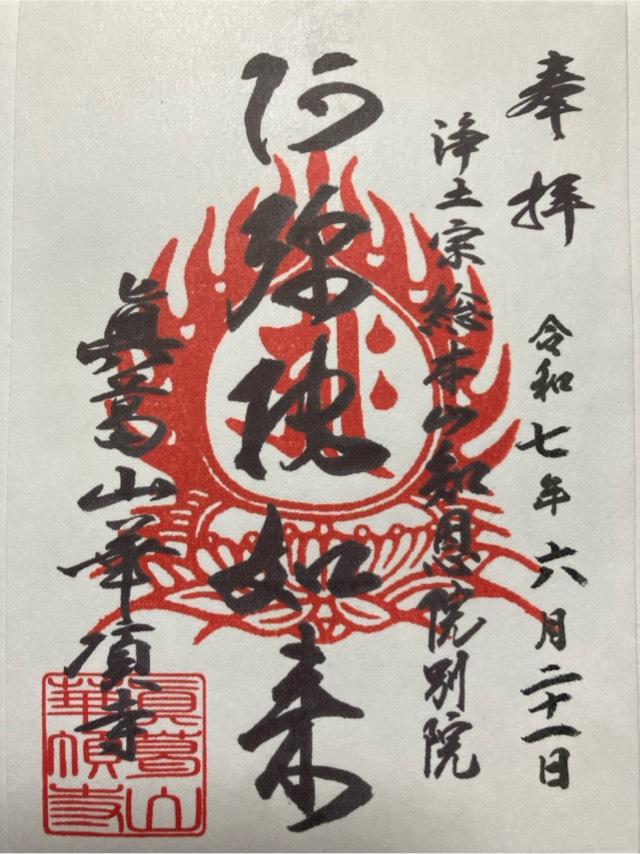 奉拝
令和七年六月二十一日
浄土宗総本山知恩院別院
阿弥陀如来
眞葛山華頂寺
眞葛山
華頂寺